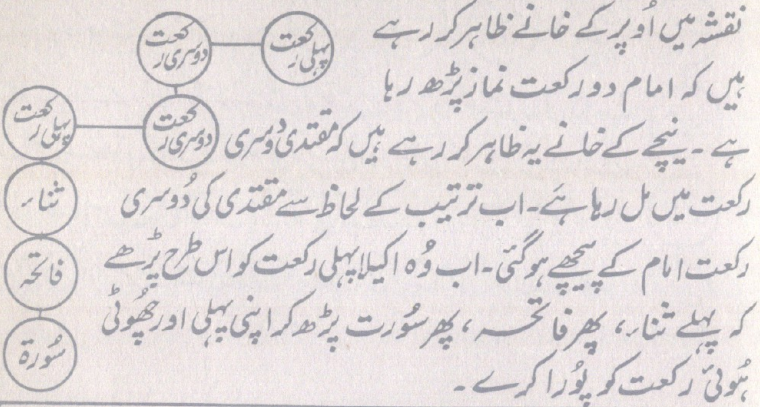 نقشہ میں اُوپر کے خانے ظاہر کر رہے
ہیں کہ امام دو رکعت نماز پڑھ رہا
ہے ۔ نیچے کے خانے یہ ظاہر کر رہے ہیں کہ مقتدی دوسری
رکعت میں مل رہا ہے ۔ اب ترتیب کے لحاظ سے مقتدی کی دُوسری
رکعت امام کے پیچھے ہو گئی ۔ اب وُہ اکیلا پہلی رکعت کو اس طرح پڑھے
کہ پہلے ثناء، پھر فاتحہ ، پھر سُورت پڑھ کر اپنی پہلی اور چھُوٹی
ہُوئی رکعت کو پُورا کرے ۔
پہلی رکعت
دوسری رکعت
دوسری رکعت
پہلی رکعت
ثناء
فاتحہ
سُورۃ